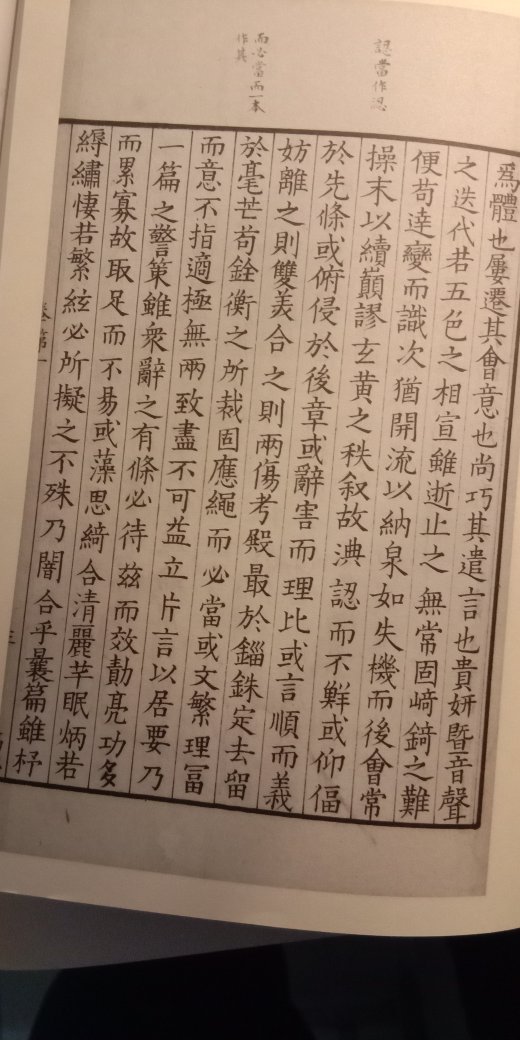 認當作涊
而必當而一本
作其
爲體也屢遷其會意也尚巧其遣言也貴妍暨音聲
之迭代若五色之相宣雖逝止之無常固崎錡之難
便苟達變而識次猶開流以納泉如失機而後會常
操末以續巔謬玄黃之秩叙故淟認而不鮮或仰偪
於先條或俯侵於後章或辭害而理比或言順而義
妨離之則雙美合之則兩傷考殿最於錙銖定去留
於毫芒苟銓衡之所裁固應繩而必當或文繁理冨
而意不指適極無兩致盡不可益立片言以居要乃
一篇之警策雖衆辭之有條必待玆而效勣亮功多
而累寡故取足而不易或藻思綺合清麗芊眠炳若
縟繡悽若繁絃必所擬之不殊乃闇合乎曩篇雖杼